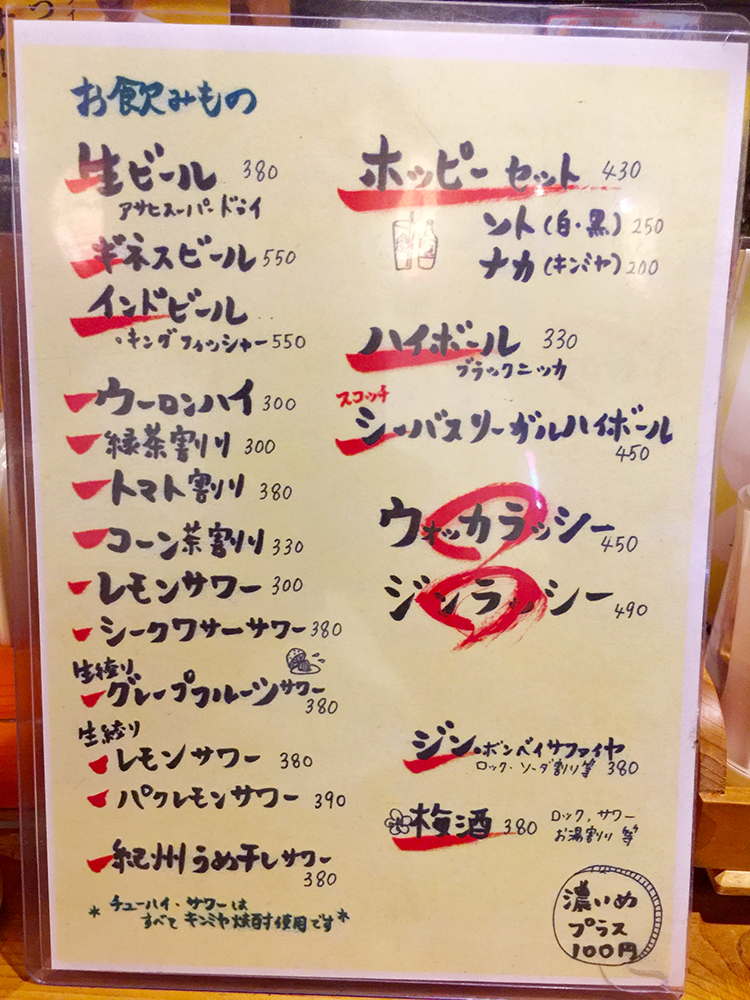 お飲みもの
生ビール 380
アサヒスーパードライ
ギネスビール 550
インドビール
・キングフィッシャー 550
ウーロンハイ 300
緑茶割り 300
トマト割り 380
コーン茶割り 330
レモンサワー 300
シークワサーサワー 380
生絞り
グレープフルーツサワー
380
生絞り
レモンサワー 380
パクレモンサワー 390
紀州うめ干しサワー
380
* チューハイ・サワーは
すべて キンミヤ焼酎使用です *
ホッピーセット 430
ソト(白・黒) 250
ナカ(キンミヤ) 200
ハイボール 330
ブラックニッカ
スコッチ
シーバスリーガルハイボール
450
ウォッカラッシー
450
ジンラッシー
490
ジン・ボンベイサファイヤ
ロック・ソーダ割り等 380
梅酒 380 ロック, サワー
お湯割り 等
濃いめ
プラス
100円